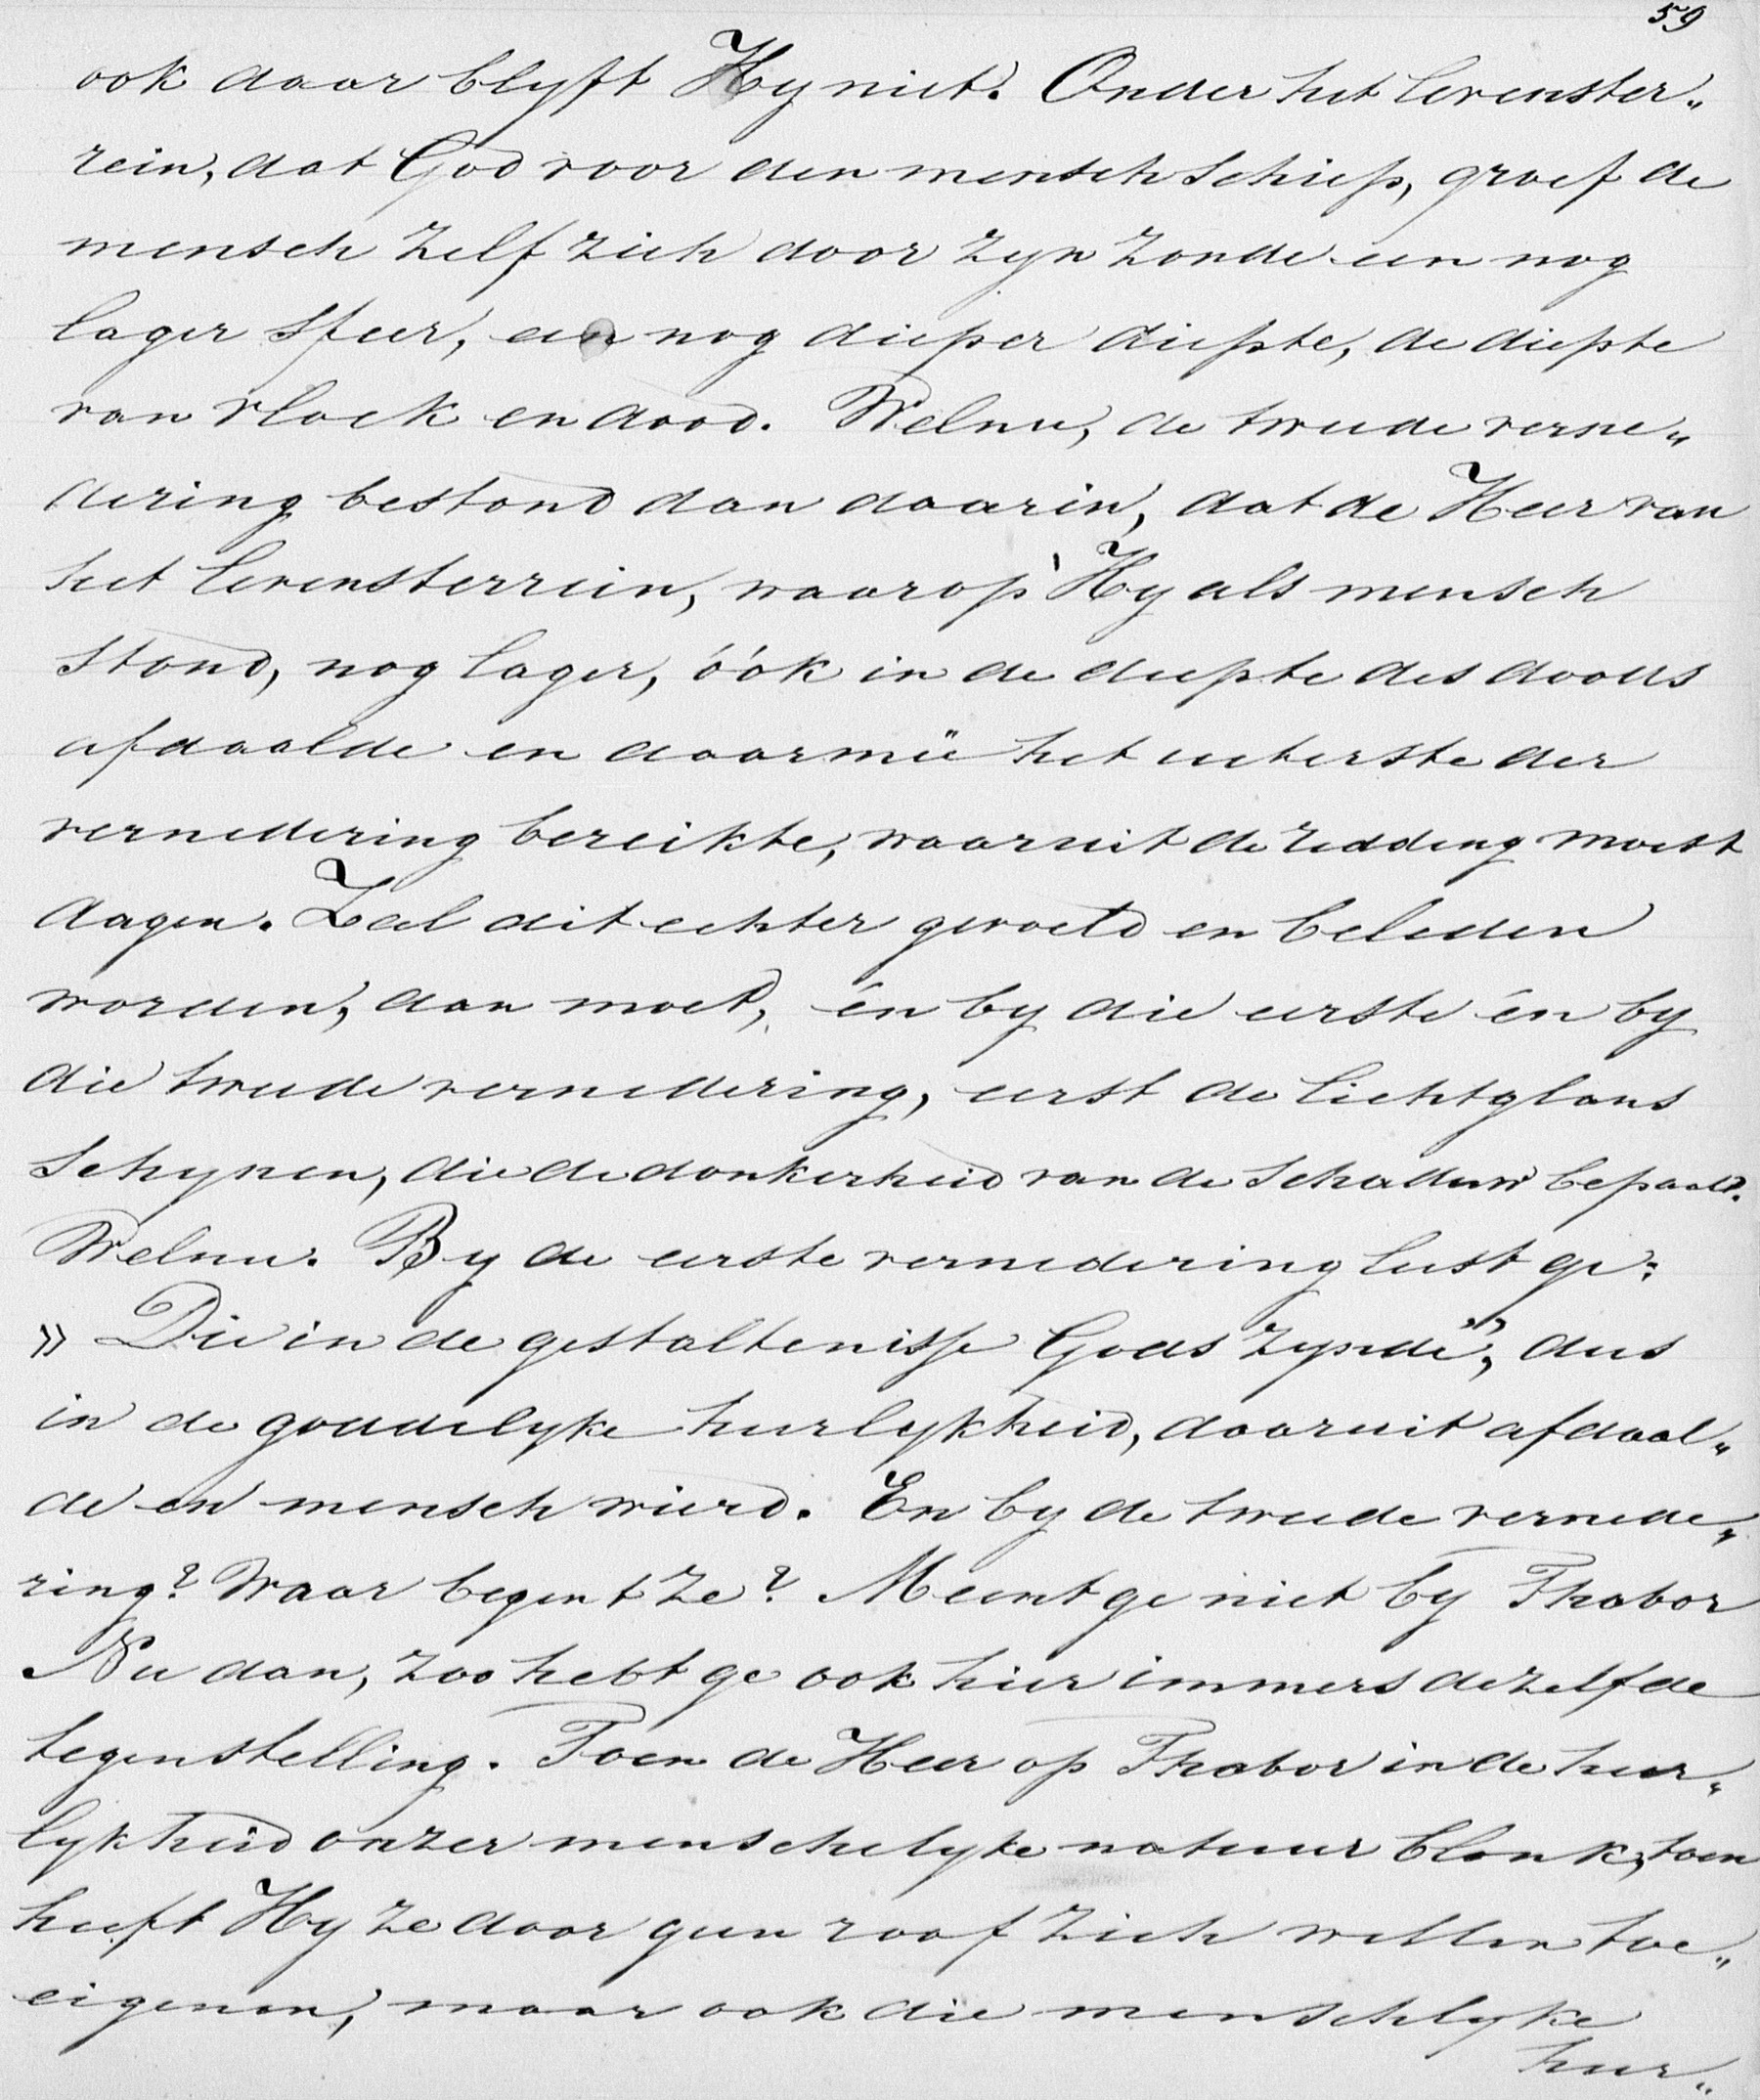 59
ook daar blyft Hy niet. Onder het levenster„
rein, dat God voor den mensch schiep, groef de
mensch zelf zich door zyn zonde een nog
lager sfeer, een nog dieper diepte, de diepte
van vloek en dood. Welnu, de tweede verne„
dering bestond dan daarin, dat de Heer van
het levensterrein, waarop Hy als mensch
stond, nog lager, óók in de diepte des doods
afdaalde en daarmeê het uiterste der
vernedering bereikte, waaruit de redding moest
dagen. Zal dit echter gevoeld en beleden
worden, dan moet, én by die eerste én by
die tweede vernedering, eerst de lichtglans
schynen, die de donkerheid van de schaduw bepaalt.
Welnu. By de eerste vernedering leest ge:
» Die in de gestaltenisse Gods zynde”, dus
in de goddelyke heerlykheid, daaruit afdaal„
de en mensch wierd. En by de tweede vernede„
ring? Waar begint ze? Meent ge niet by Thabor
Nu dan, zoo hebt ge ook hier immers dezelfde
tegenstelling. Toen de Heer op Thabor in de heer„
lykheid onzer menschelyke natuur blonk, toen
heeft Hy ze door geen roof zich willen toe„
eigenen, maar ook die menschlyke
heer„